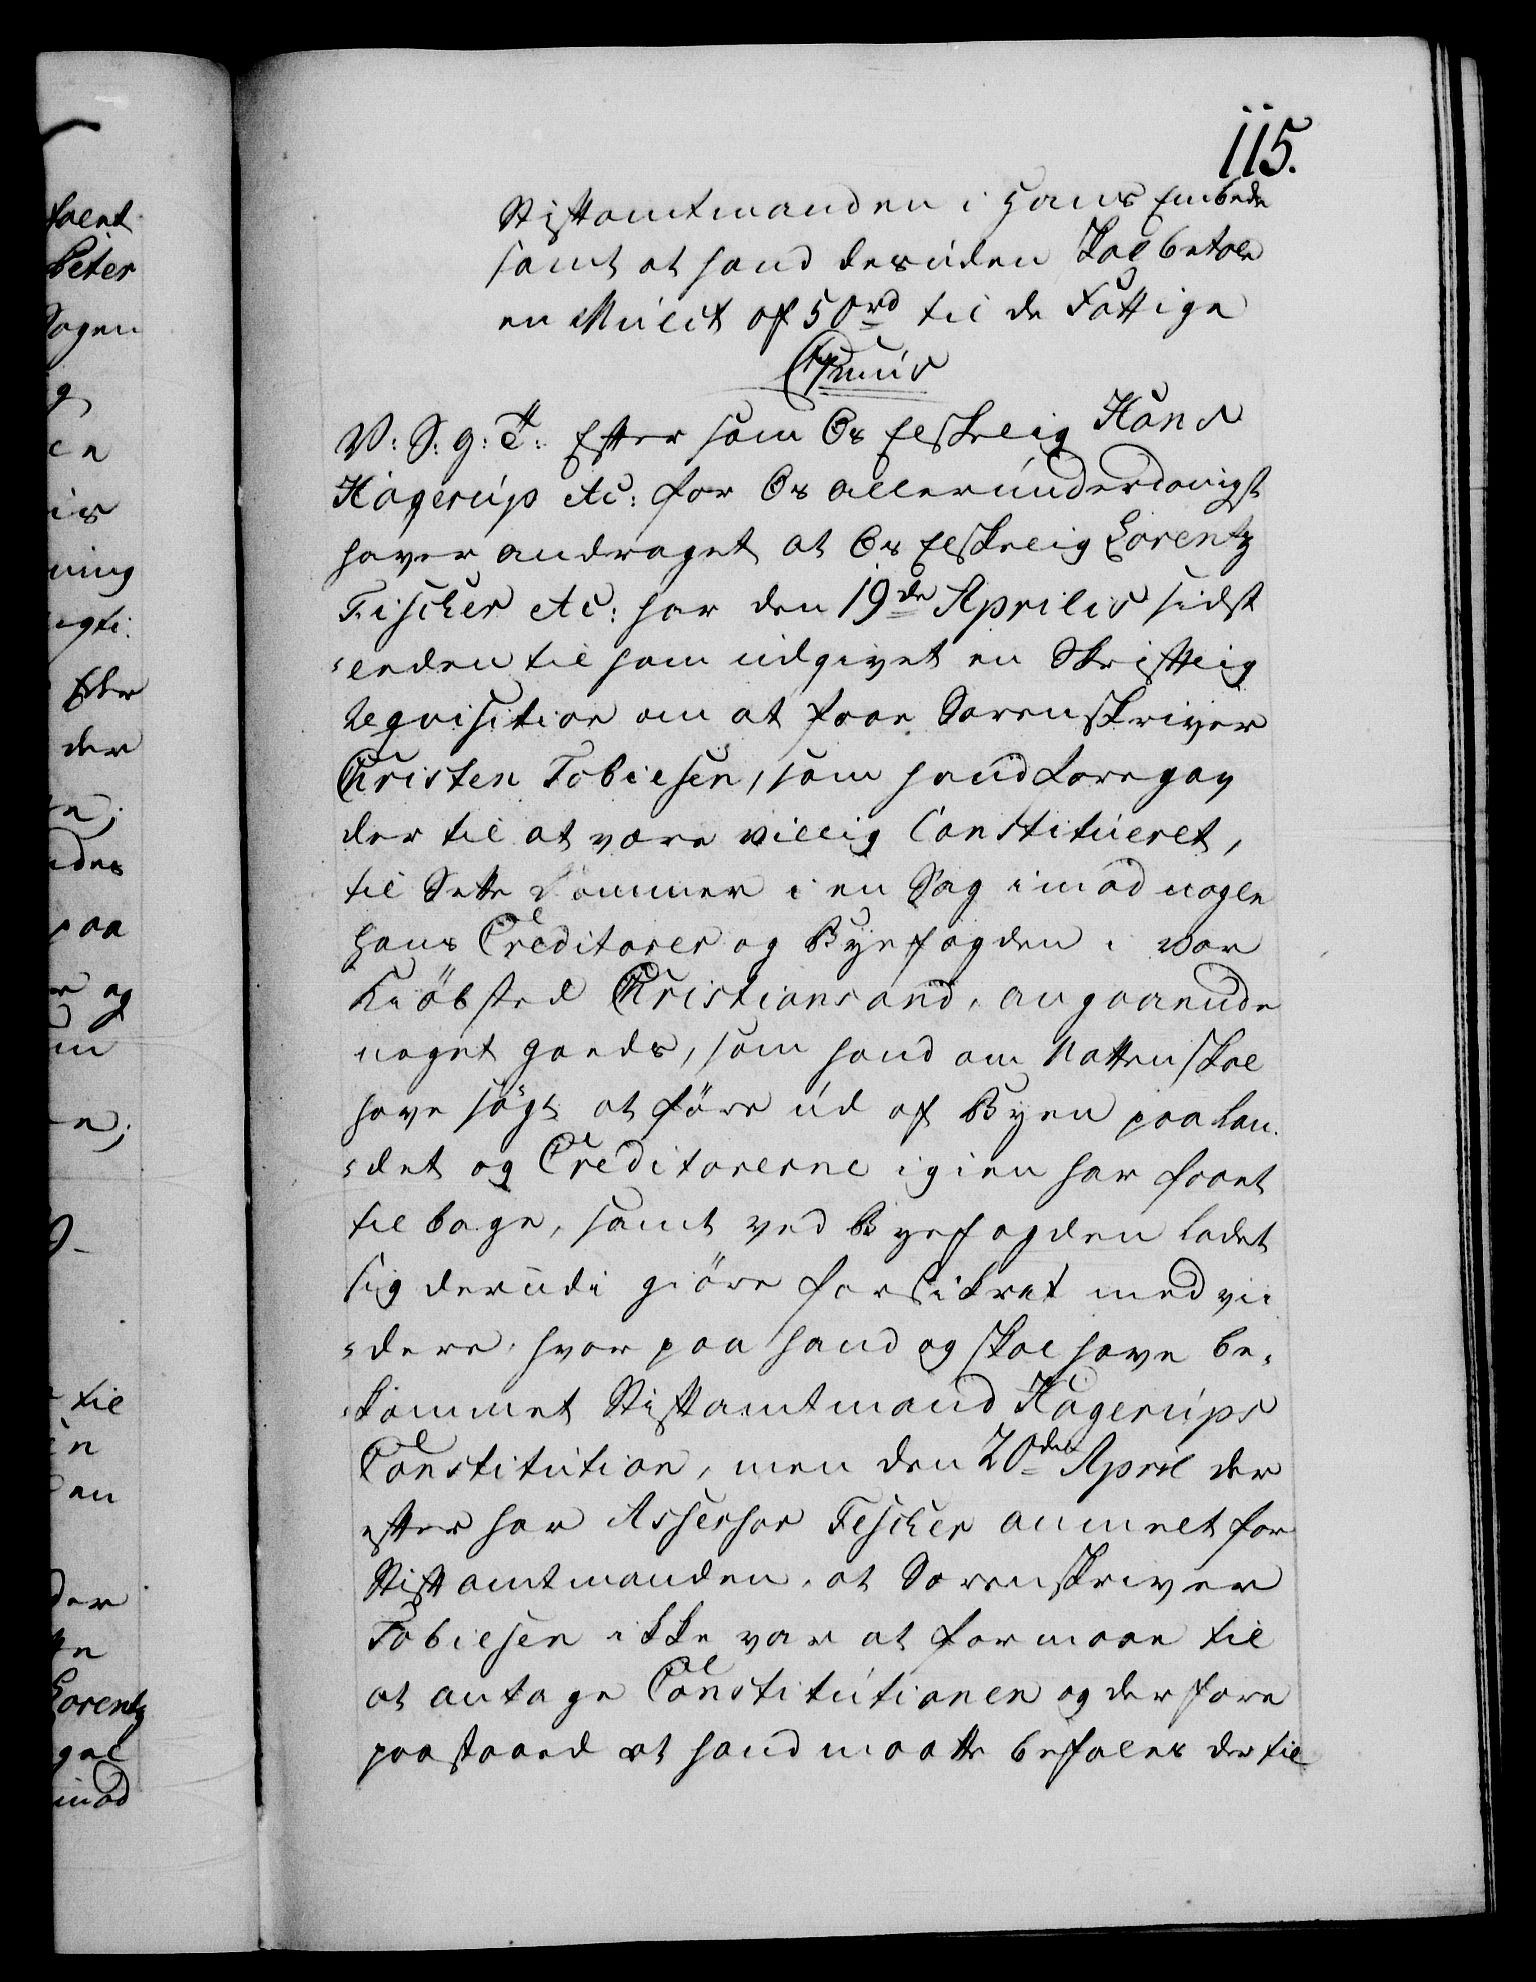 115.
Stiftamtmanden i hans Embede
samt at hand desuden skal betale
en Mulct af 50 rd til de Fattige
V: S: g: T: Efter som Os Elskelig Hans
Hagerup etc: for Os allerunderdanigst
haver andraget at Os Elskelig Lorentz
Fischer etc: har den 19de Aprilis sidst
leeden til ham udgivet en Skriftlig
Reqvisition om at faae Sorenskriver
Christen Tobiesen, som hand foregav
der til at være villig Constitueret,
til Sette Dommer i en Sag imod nogle
hans Creditorer og Byefogden i vor
Kiöbsted Christiansand, angaaende
noget Goeds, som hand om Natten skal
have sögt at före ud af Byen paa Lan-
det og Creditorerne igien har faaet
tilbage, samt ved Byefogden ladet
sig derudi giöre forsikret med vii-
dere, hvor paa hand og skal have be-
kommet Stiftamtmand Hagerups
Constitution, men den 20de April der
efter har Assessor Fischer anmelt for
Stiftamtmanden, at Sorenskriver
Tobiesen ikke var at formaae til
at antage Constitutionen og derfore
paastaaed at hand maatte befales dertil